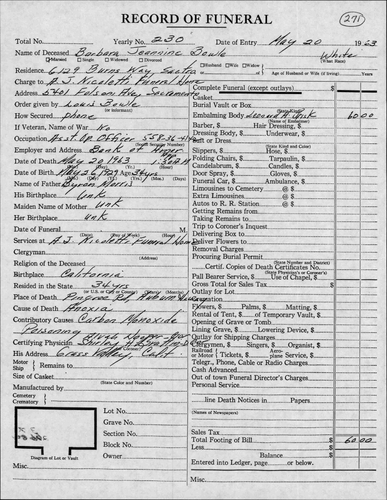 RECORD OF FUNERAL 271
Total No. Yearly No. 230 Date of Entry May 20 1963
Name of Deceased Barbara Jeannine Bowle White
Married Single Widowed Divorced (What Race)
Residence 6129 Burns Way, Sacto Husband Wife Widow Age of Husband or Wife (if living) Years
Charge to A.J. Nicoletti Funeral Home
Address 5401 Folsom Ave, Sacramento
Order given by Louis Bowle
(or informant)
How Secured phone
If Veteran, Name of War No
Occupation Asst. Op. Officer 558-36-
(Social Security Number)
Employer and Address Bank of
Date of Death May 20 1963
Date of Birth May 26 1928 34 yrs
Name of Father Byron Morris
His Birthplace Unk
Maiden Name of Mother Unk
Her Birthplace Unk
Date of Funeral M.
(Date) (Day) (Hour)
Services at A.J. Nicoletti Funeral Home
Clergyman
(Address)
Religion of the Deceased
Birthplace California
Resided in the State 34 yrs
(or U.S. or City or County)
Place of Death
Cause of Death Anoxia
Contributory Causes Carbon Monoxide
Poisoning
Certifying Physician
His Address Grass Valley, Calif.
Motor
Ship Remains to
Size of Casket
(State Color and Number)
Manufactured by
Cemetery
Crematory
Lot No.
Grave No.
Section No.
Block No.
Owner
Diagram of Lot or Vault
Misc.
Complete Funeral (except outlays) $
Casket
Burial Vault or Box
Embalming Body 60 00
(Name of Embalmer)
Barber, $ Hair Dressing, $
Dressing Body, $ Underwear, $
Suit or Dress
(State Kind and Color)
Slippers, $ Hose, $
Folding Chairs, $ Tarpaulin, $
Candelabrum, $ Candles, $
Door Spray, $ Gloves, $
Funeral Car, $ Ambulance, $
Limousines to Cemetery @ $
Extra Limousines @ $
Autos to R. R. Station @ $
Getting Remains from
Taking Remains to
Trip to Coroner's Inquest
Delivering Box to
Deliver Flowers to
Removal Charges
Procuring Burial Permit
(State Number and District)
Certif. Copies of Death Certificates No.
(State Physician's or Coroner's)
Pall Bearer Service, $ Use of Chapel, $
Gross Total for Sales Tax $
Outlay for Lot
Flowers, $ Palms, $ Matting, $
Rental of Tent, $ of Temporary Vault, $
Opening of Grave or Tomb
Lining Grave, $ Lowering Device, $
Outlay for Shipping Charges
Clergymen, $ Singers, $ Organist, $
Railroad
or Motor Tickets, $ Aeroplane Service, $
Telegr., Phone, Cable or Radio Charges
Cash Advanced
Out of town Funeral Director's Charges
Personal Service
line Death Notices in Papers
(Names of Newspapers)
Sales Tax
Total Footing of Bill $ 60 00
Less $
Balance $
Entered into Ledger, page or below.
Misc.